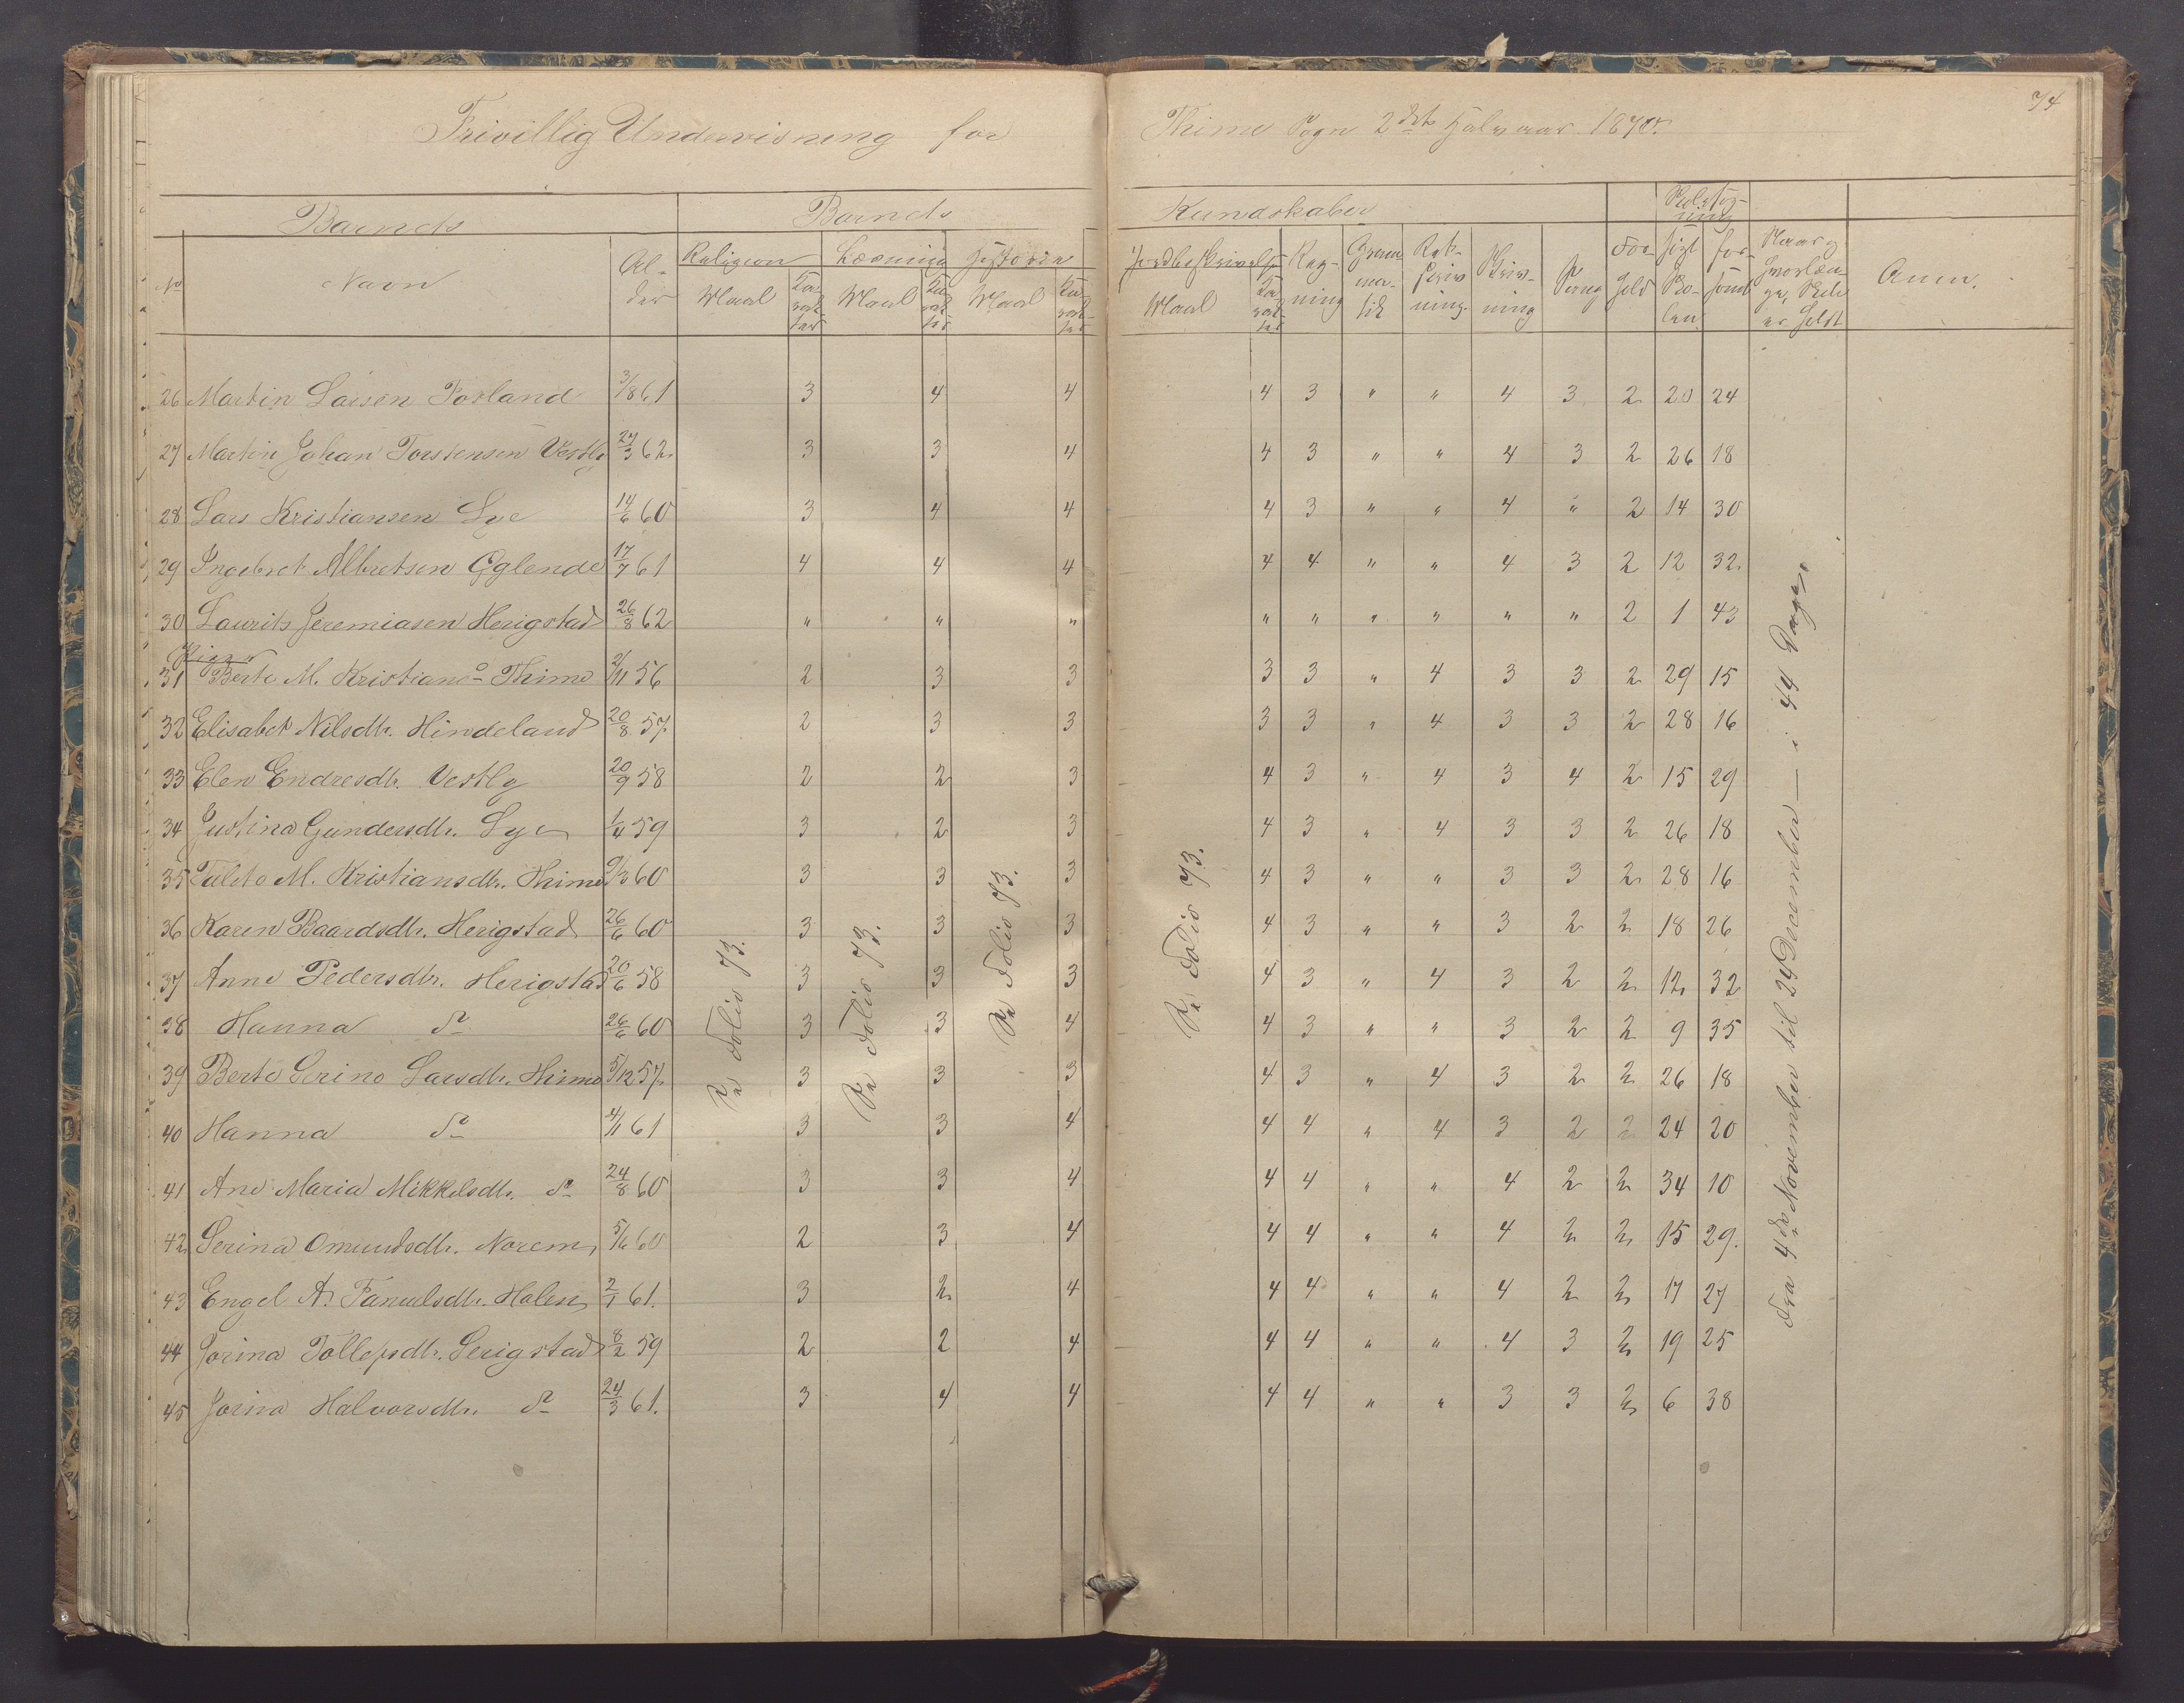 74
Frivillig Undervisning for Thime Sogn 2det Halvaar 1870.
Barnets Barnets Kundskaber Skolesøgning
No Navn Alder Religion Læsning Historie Jordbeskrivelse Regning Gramatik Retskrivning Skrivning Sang Forhold søgt Skolen forsømt Naar og hvorlænge Skole er holdt Anm.
Maal Karakter Maal Karakter Maal Karakter Maal Karakter
26 Martin Larsen Fosland 3/8 61 3 4 4 4 3 " " 4 3 2 20 24
27 Martin Johan Torstensen Vestly 27/3 62 3 3 4 4 3 " " 4 3 2 26 18
28 Lars Kristiansen Lye 14/6 60 3 4 4 4 3 " " 4 " 2 14 30
29 Ingebret Albretsen Eglende 17/7 61 4 4 4 4 4 " " 4 3 2 12 32
30 Laurits Jeremiasen Herigstad 26/8 62 " " " " " " " " " 2 1 43
Piger
31 Berte M. Kristiansd Thime 2/11 56 2 3 3 3 3 " 4 3 3 2 29 15
32 Elisabet Nilsdtr. Hindeland 20/8 57 2 3 3 3 3 " 4 3 3 2 28 16
33 Elen Endresdtr. Vestly 20/9 58 2 2 3 4 3 " 4 3 4 2 15 29
34 Justina Gundersdtr. Lye 1/4 59 3 2 3 4 3 " 4 3 3 2 26 18
35 Tulete M. Kristiansdtr. Thime 9/3 60 3 3 3 4 3 " " 3 3 2 28 16
36 Karen Baardsdtr. Herigstad 26/6 60 3 3 3 4 3 " " 3 2 2 18 26
37 Anne Pedersdtr. Herigstad 20/6 58 3 3 3 4 3 " 4 3 2 2 12 32
38 Hanna do 26/6 60 3 3 4 4 3 " " 3 2 2 9 35
39 Berte Serine Larsdtr. Thime 5/12 57 3 3 3 4 3 " 4 3 2 2 26 18
40 Hanna do 4/11 61 3 3 4 4 4 " 4 3 2 2 24 20
41 Ane Maria Mikkelsdtr. do 24/8 60 3 3 4 4 4 " " 4 2 2 34 10
42 Serina Omundsdtr. Norem 5/6 60 2 3 4 4 4 " " 4 2 2 15 29.
43 Engel A. Tanuelsdtr. Halen 2/1 61. 3 2 4 4 4 " " 4 2 2 17 27
44 Jorina Tollefsdtr. Serigstad 8/2 59 2 2 4 4 4 " " 4 3 2 19 25
45 Jorina Halvorsdtr. do 24/3 61. 3 4 4 4 4 " " 3 3 2 6 38
Se Folio 73.
Se Folio 73.
Se Folio 73.
Se Folio 73.
Fra 4de November til 24 December — i 44 Dage.